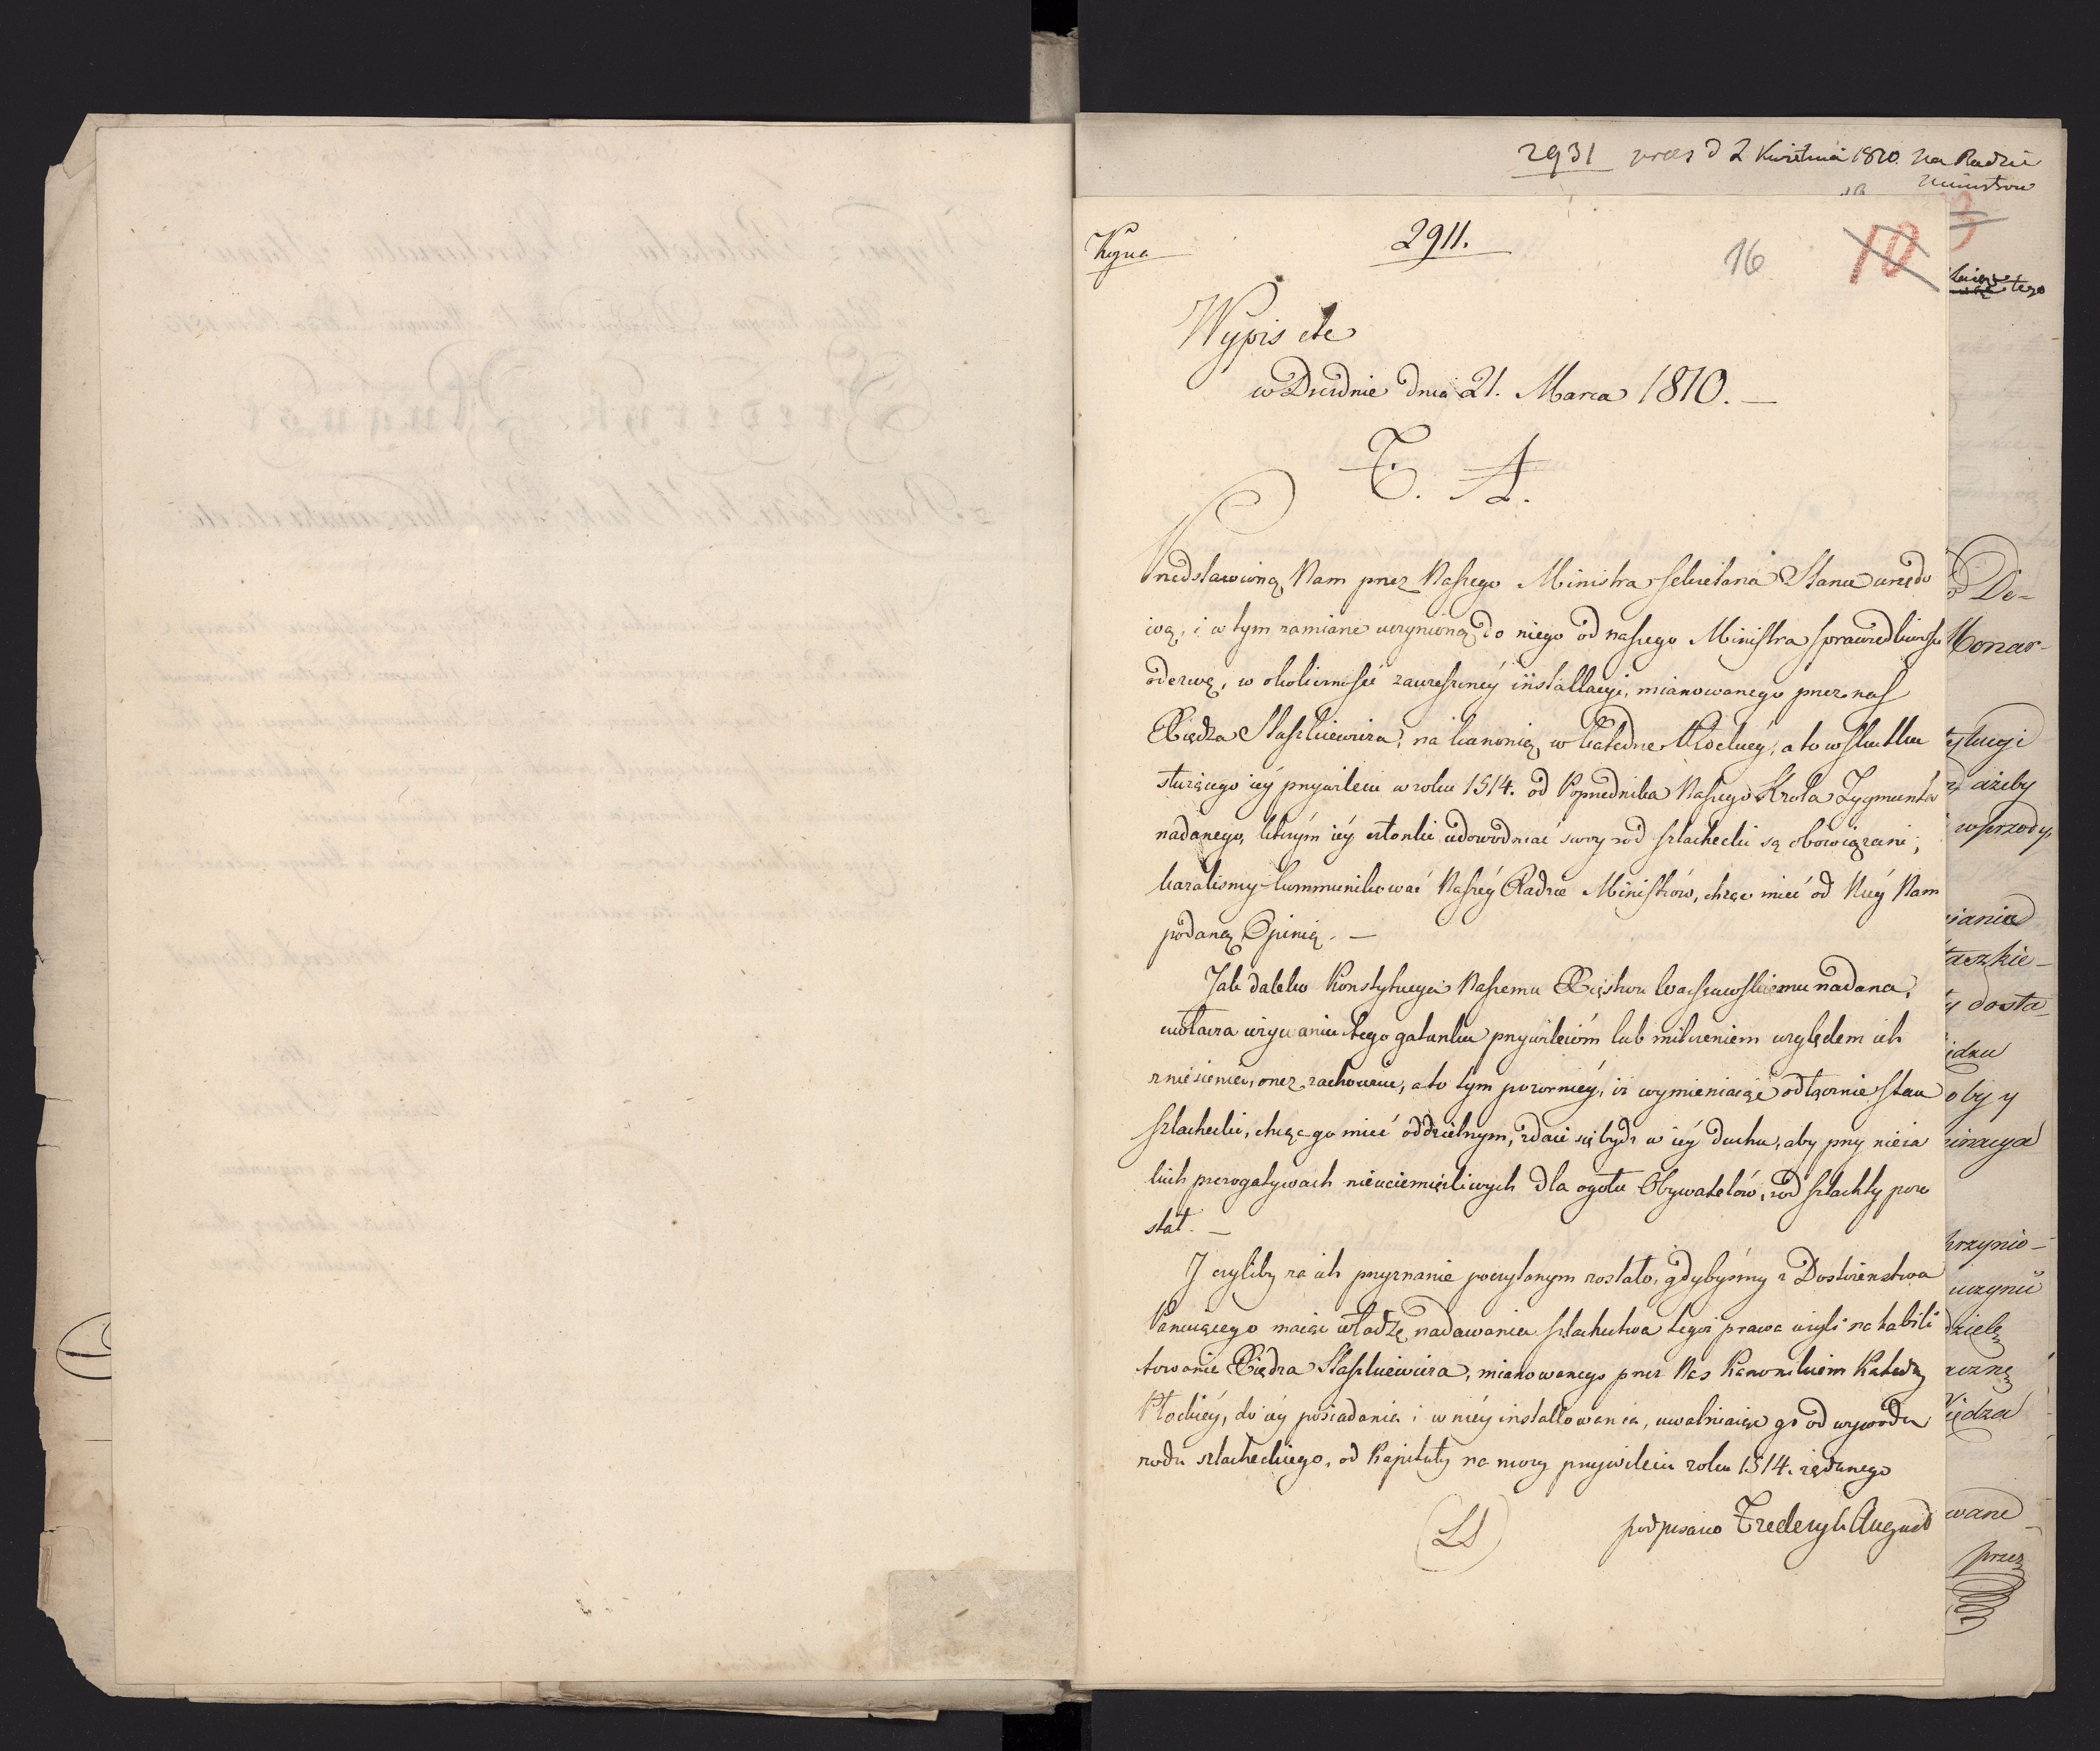 2931 prces d 2 Kwietnia 1810. na Radzie
Ministrow
Kopia
2911.
16
10
3
tego
Wypis etc
w Dreźnie dnia 21. Marca 1810. —
F. A.
Przedstawioną Nam przez Naszego Ministra Sekretarza Stanu urzędo
wą, i w tym zamiarze uczynioną do niego od naszego Ministra Sprawiedliwości
odezwę, w okoliczności zawieszoney installacyi, mianowanego przez nas
Xiędza Staszkiewicza, na kanonią w katedrze Płockiey, a to w skutku
służącego iey przywileiu w roku 1514. od Poprzednika Naszego Krola Zygmunta
nadanego, którym iéy członki udowodniać swoy ród szlachecki są obowiązani;
kazalismy kommunikować Naszéy Radzie Ministrów, chcąc mieć od Niéy Nam
podaną Opinią. —
Jak daleko Konstytucya Naszemu Xięstwu Warszawskiemu nadana,
uwłacza używaniu tego gatunku przywileióm lub milczeniem względem ich
zniesienia, onez zachowuie, a to tym pozorniéy, iż wymieniaiąc odłącznie stan
szlachecki, chcąc go mieć oddzielnym, zdaie się bydz w iéy duchu, aby przy nieia
kich prerogatywach nieuciemiężliwych dla ogołu Obywatelów, ród szlachty pozo
stał. —
I czyliby za ich przyznanie poczytanym zostało, gdybyśmy z Dostoienstwa
Panuiącego maiąc władzę nadawania szlachectwa tegoż prawa użyli na habili
towanie Xiędza Staszkiewicza, mianowanego przez Nas Kanonikiem Katedry
Płockiéy, do iéy posiadania i w niéy installowania, uwalniaiąc go od wywodu
rodu szlacheckiego, od Kapituły na mocy przywileiu roku 1514. żądanego
(LS) podpisano Fryderyk August
De-
Monar-
tytucyi
ażeby
wprzody,
iania
taszkie-
dosta-
iędzu
oby y
inacya
przynio-
uczynić
dzielę
czną
Xiędza
wane
przez